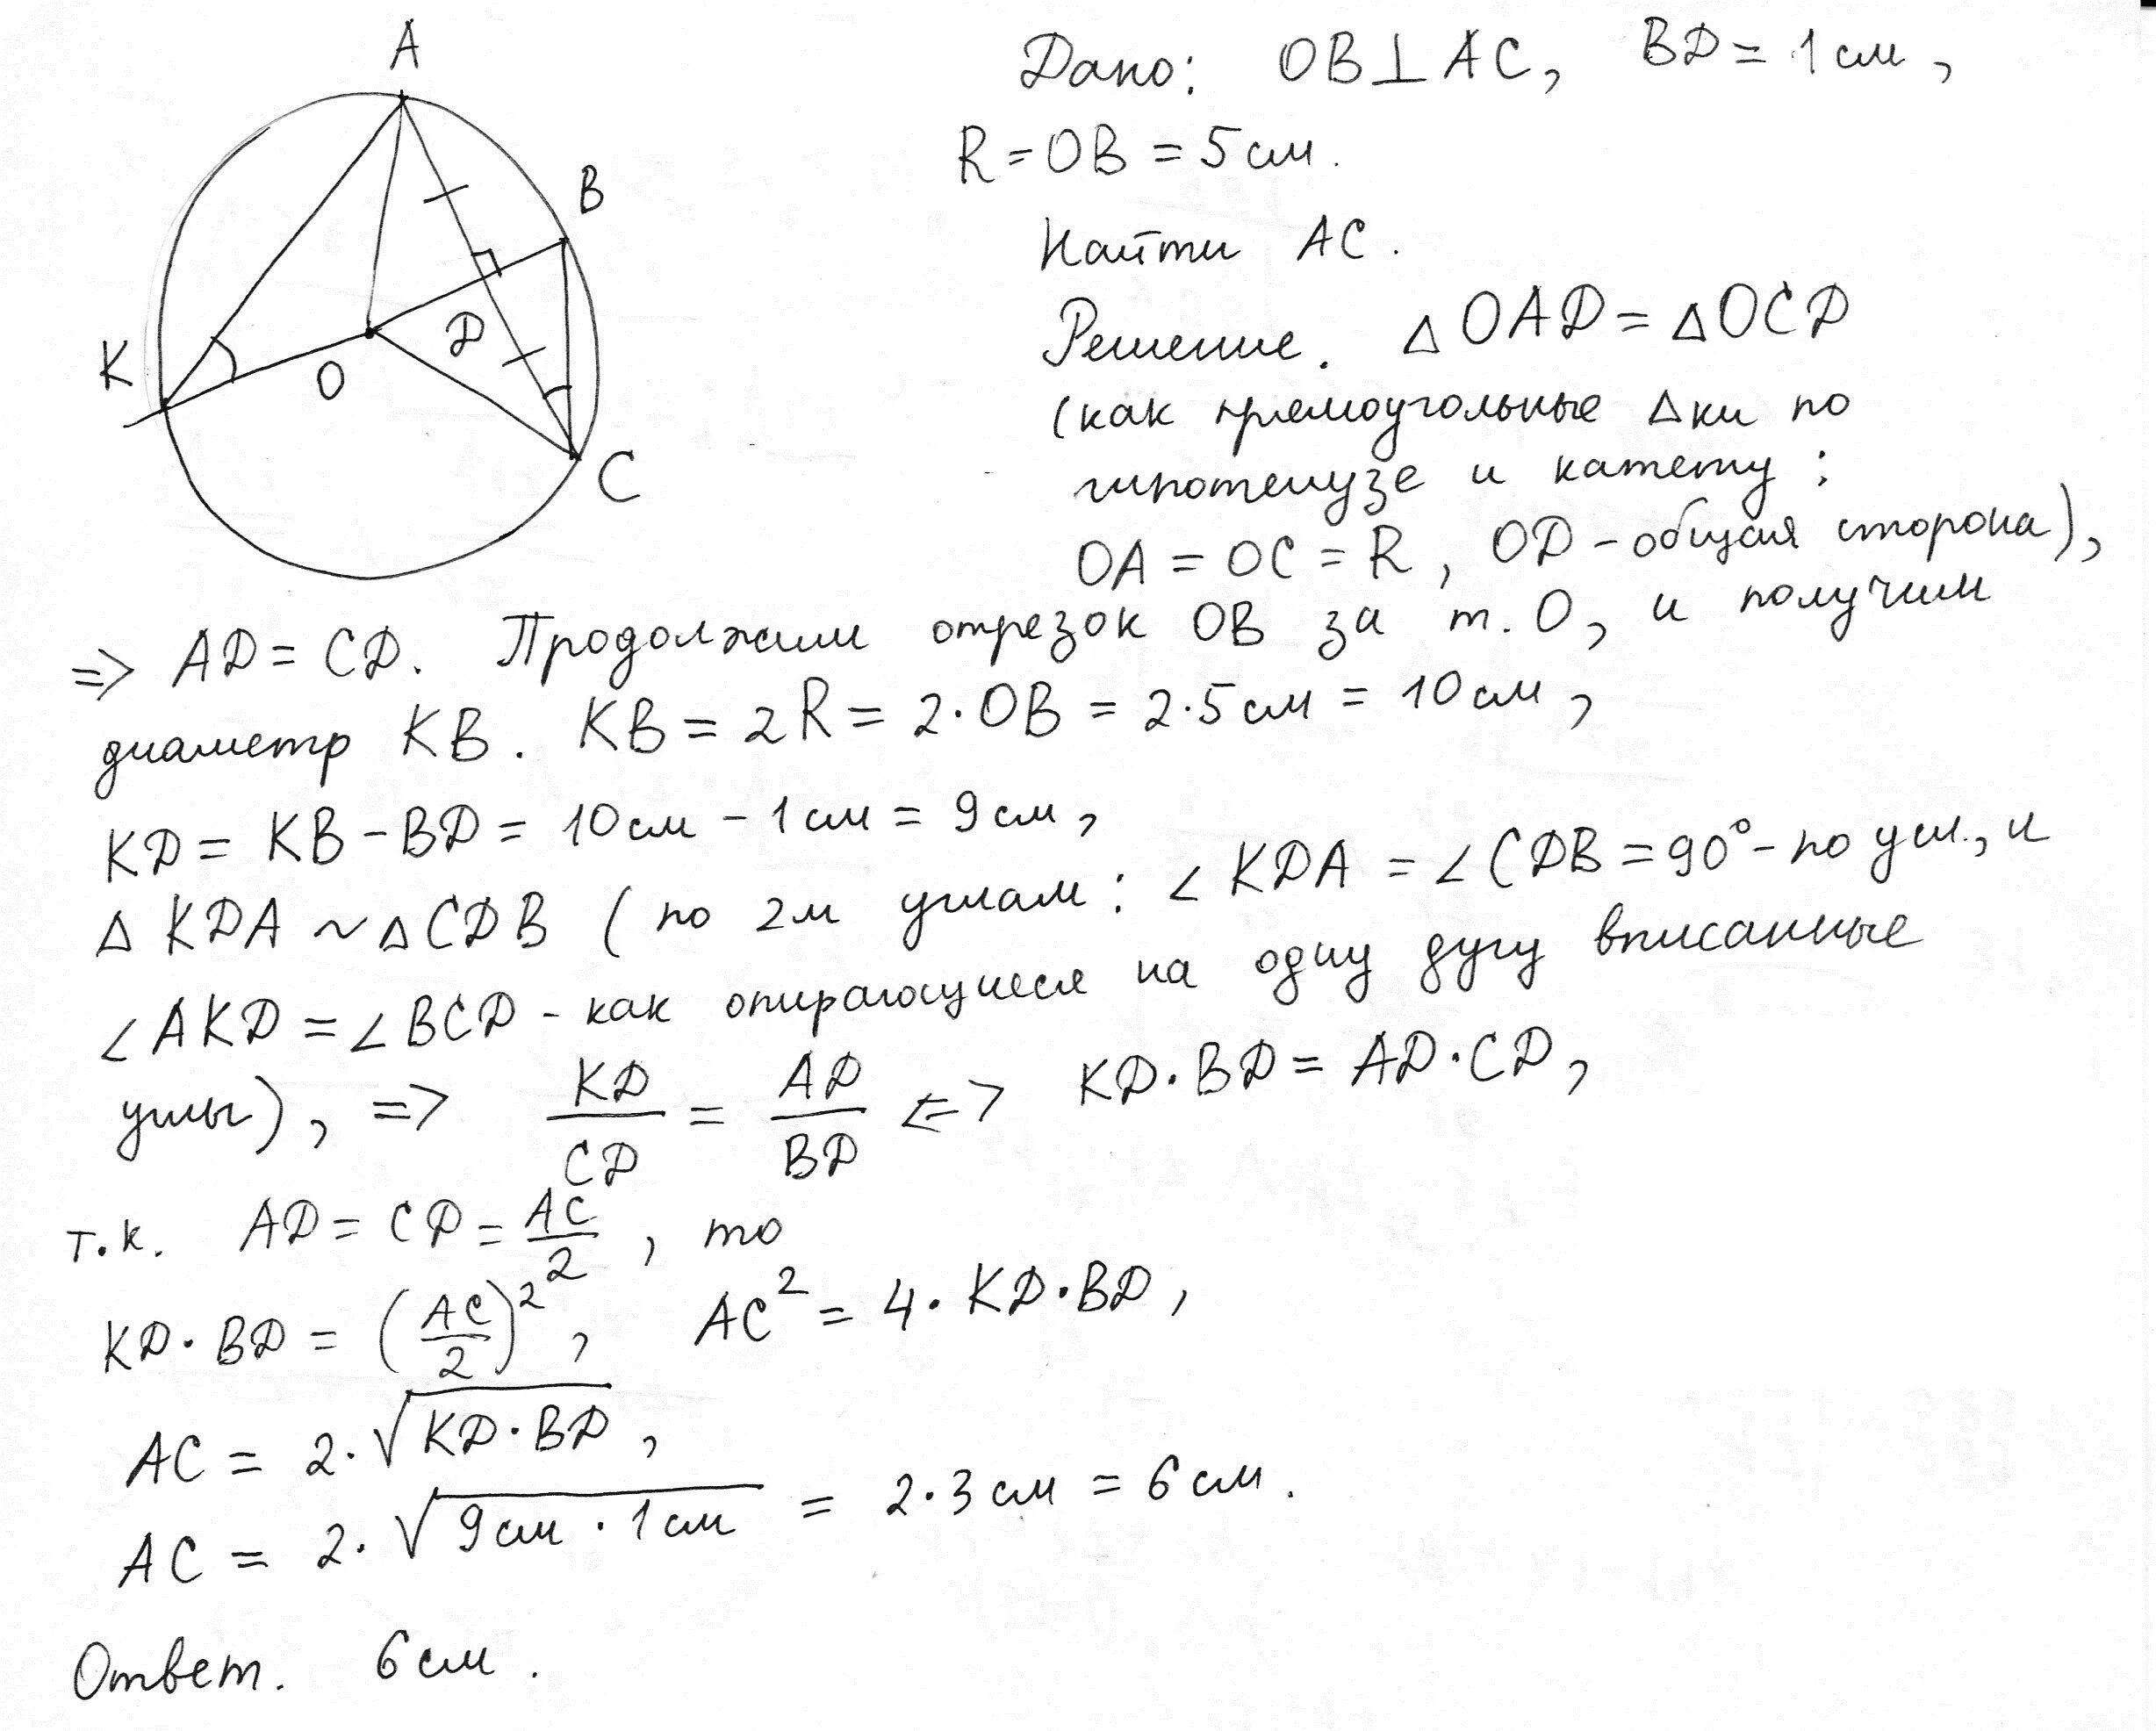 A
B
K
O
D
C
Дано: OB⊥AC, BD = 1 см,
R = OB = 5 см.
Найти AC.
Решение. △OAD = △OCD
(как прямоугольные △ки по
гипотенузе и катету:
OA = OC = R, OD - общая сторона),
=> AD = CD. Продолжим отрезок OB за т. O, и получим
диаметр KB. KB = 2R = 2·OB = 2·5 см = 10 см,
KD = KB - BD = 10 см - 1 см = 9 см,
△ KDA ~ △CDB (по 2м углам: ∠KDA = ∠CDB = 90° - по усл., и
∠AKD = ∠BCD - как опирающиеся на одну дугу вписанные
углы), => KD/CD = AD/BD <=> KD·BD = AD·CD,
т.к. AD = CD = AC/2, то
KD·BD = (AC/2)², AC² = 4·KD·BD,
AC = 2·√(KD·BD),
AC = 2·√(9 см · 1 см) = 2·3 см = 6 см.
Ответ. 6 см.